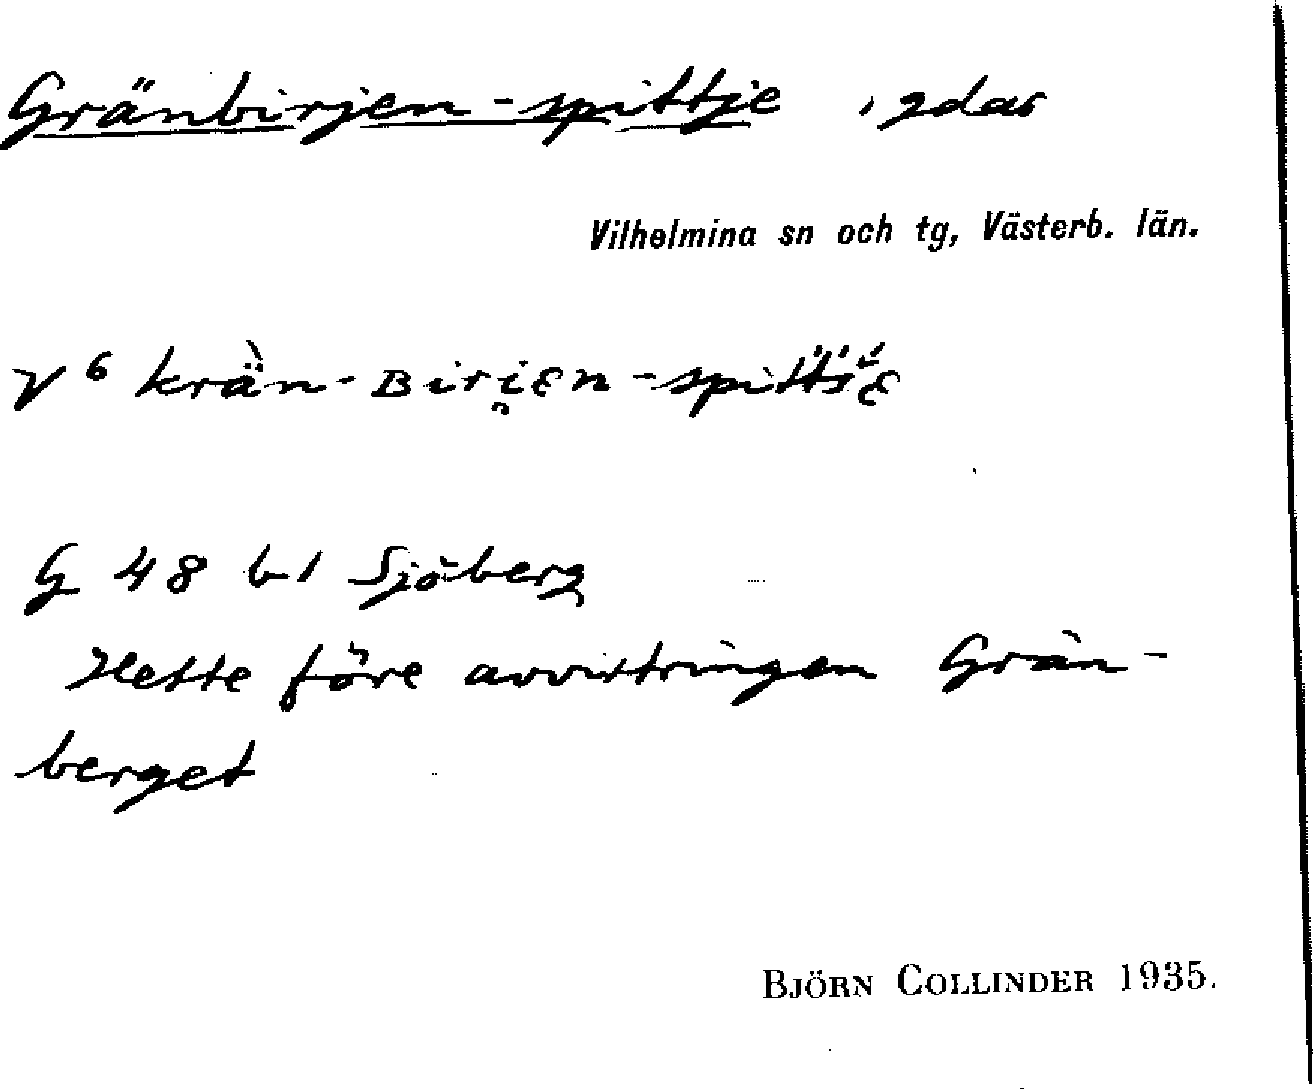 Gränbirjen-spittje , gdar
Vilhelmina sn och tg, Västerb. län.
V 6 krä̀n-ʙiri̯ɛn-spitt́śɛ
G 48 b1 Sjöberg
Hette före avvittringen Grän-
berget
BJÖRN COLLINDER 1935.